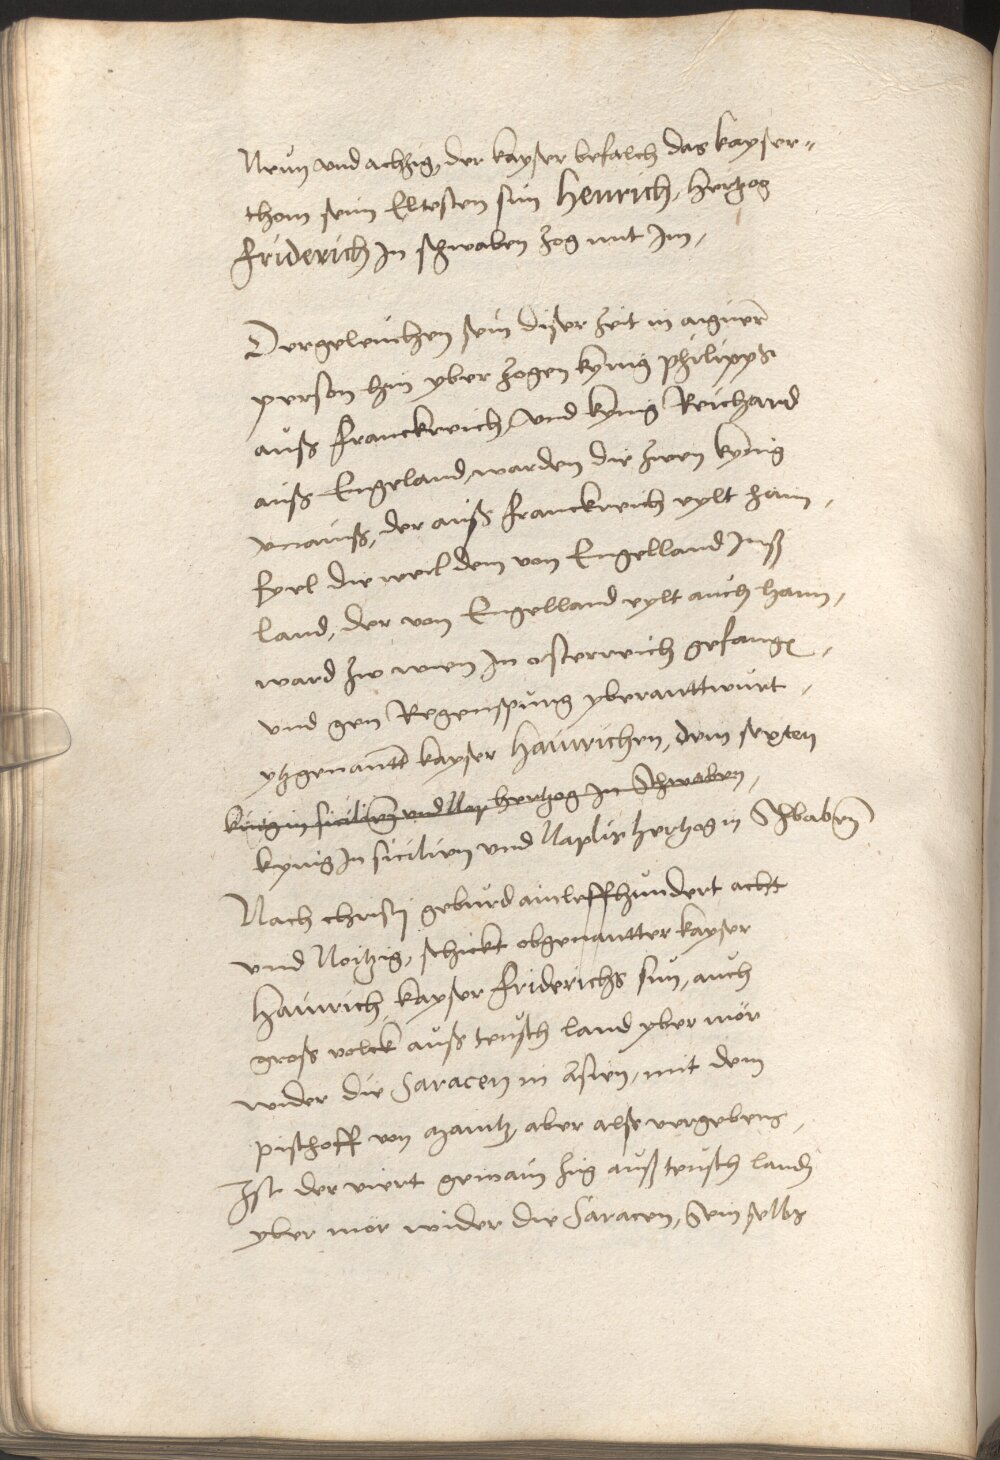 Neun und achzig, der kayser befalch das kayser-
thom seim Eltesten sun Henrich, hertzog
Friderich In schwaben zog mit Im,
Dergeleichen sein diser zeit in aigner
person hin yber zogen kynig philipps
auß Franckreich, und kynig Reichard
auß Engeland, warden die zwen kynig
unainß, der auß Franckreich eylt haim,
fyel die weil dem von Engelland Inß
land, der von Engelland eylt auch haim,
ward zw wien In osterreich gefangen,
und gen Regenspurg yberanttwurt,
ytzgenantt kayser Hainrichen, dem sexten
kunig in sicilien und Nap hertzog In Schwaben,
kynig In sicilien und Naplis hertzog in Schbaben
Nach christj geburd ainleffhundert acht
und Neitzig, schickt obgenantter kayser
Hainrich, kayser Friderichs sun, auch
groß volck auß teusch land yber mör
wider die Saracen in Asien, mit dem
pischoff von Maintz, aber alß vergebens,
Ist der viert gemain zug auß teusch land
yber mör wider die Saracen, Sein selbs